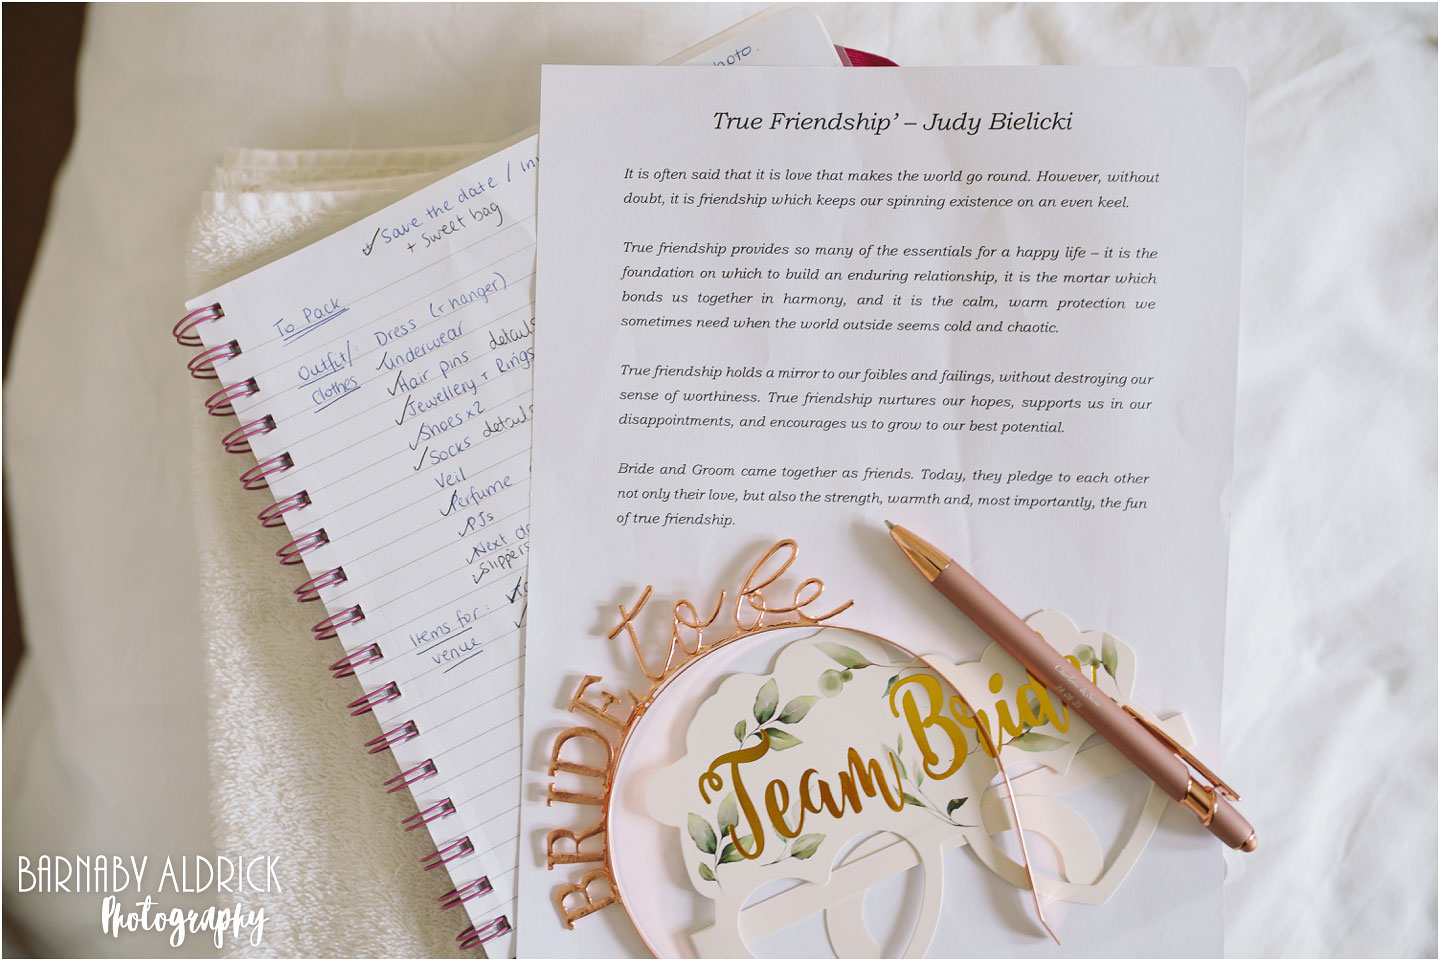 hoto.
True Friendship' – Judy Bielicki
It is often said that it is love that makes the world go round. However, without
doubt, it is friendship which keeps our spinning existence on an even keel.
True friendship provides so many of the essentials for a happy life – it is the
foundation on which to build an enduring relationship, it is the mortar which
bonds us together in harmony, and it is the calm, warm protection we
sometimes need when the world outside seems cold and chaotic.
True friendship holds a mirror to our foibles and failings, without destroying our
sense of worthiness. True friendship nurtures our hopes, supports us in our
disappointments, and encourages us to grow to our best potential.
Bride and Groom came together as friends. Today, they pledge to each other
not only their love, but also the strength, warmth and, most importantly, the fun
of true friendship.
✓ Save the date / In
+ sweet bag
To Pack
Outfit/:
Clothes
Dress (+ hanger)
✓ Underwear
✓ Hair pins details
✓ Jewellery + Rings
✓ Shoes x2
✓ Socks details
Veil
✓ Perfume
✓ PJs
✓ Next d
✓ Slippers
Items for:
venue
BRIDE to be
Team Bride
BARNABY ALDRICK
Photography